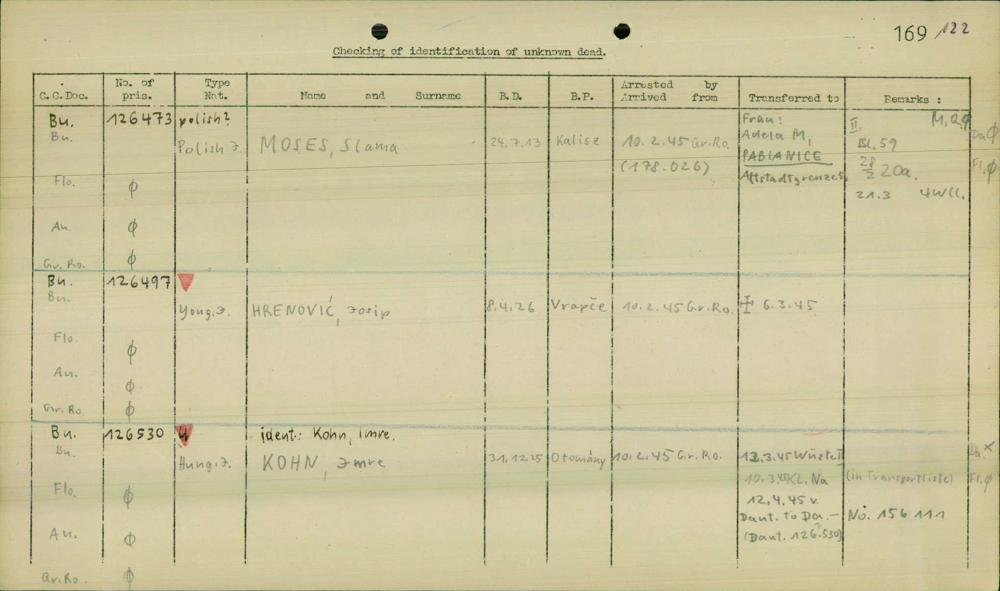 169 / 122
Checking of identification of unknown dead.
C.C.Doc. No. of pris. Type Nat. Name and Surname B.D. B.P. Arrested by Arrived from Transferred to Remarks :
Bu. 126473 polish? Frau: II. M.
Bu. Polish J. MOSES, Slama 24.7.13 Kalisz 10.2.45 Gr.Ro. Adela M, Bl. 59 Da. ϕ
(178.026) PABIANICE 28/2 20a. Fl. ϕ
Flo. ϕ Altstadtgrenze 21.3
Au. ϕ
Gr. Ro. ϕ
Bu. 126497
Bu. Youg. J. HRENOVIĆ, Josip 8.4.26 Vrapče 10.2.45 Gr.Ro. 6.3.45
Flo. ϕ
Au. ϕ
Gr. Ro. ϕ
Bu. 126530 U ident: Kohn, Imre.
Bu. Hung. J. KOHN, Imre 31.12.25 Otomány 10.2.45 Gr.Ro. 13.3.45 Da. x
10.3.45 KL. Na (in Transportliste) Fl. ϕ
Flo. ϕ 12.4.45 v.
Daut. to Da.- No. 156 111
Au. ϕ (Daut. 126.530)
Gr.Ro. ϕ